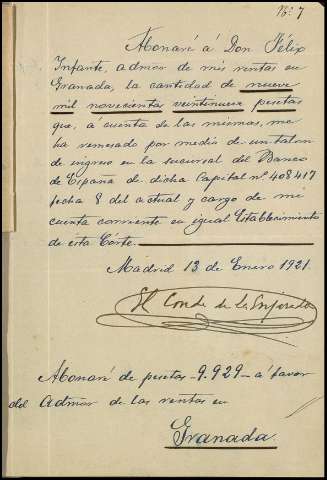 No. 7
Abonaré á Don Félix
Infante, admor de mis rentas en
Granada, la cantidad de nueve
mil novecientas veintinueve pesetas
que, á cuenta de las mismas, me
ha remesado por medio de un talon
de ingreso en la sucursal del Banco
de España de dicha Capital nº 408417
fecha 8 del actual y cargo de mi
cuenta corriente en igual Establecimiento
de esta Córte.
Madrid 13 de Enero 1921.
El Conde de la
Abonaré de pesetas 9.929 á favor
del Admor de las rentas en
Granada.